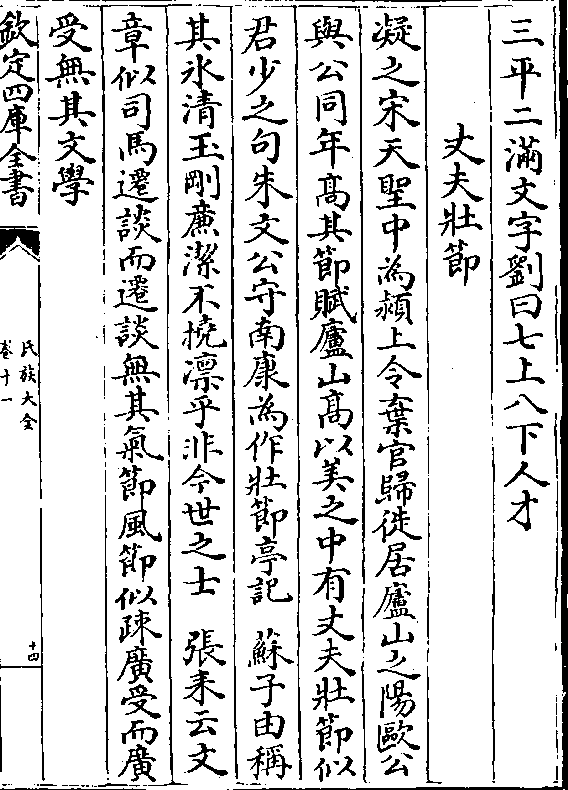 三平二滿文字劉曰七上八下人才
丈夫壯節
凝之宋天聖中為潁上令棄官歸徙居廬山之陽歐公
與公同年髙其節賦廬山髙以美之中有丈夫壯節似
君少之句朱文公守南康為作壯節亭記　蘇子由稱
其氷清玉剛亷潔不撓凛乎非今世之士　張耒云文
章似司馬遷談而遷談無其氣節風節似疎廣受而廣
受無其文學
欽定四庫全書
氏族大全
卷十一
十四